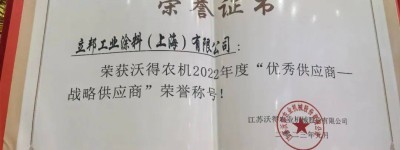 荣誉证书
立邦工业涂料（上海）有限公司：
荣获沃得农机2022年度“优秀供应商—
战略供应商”荣誉称号！
江苏沃得农业机械股份有限公司